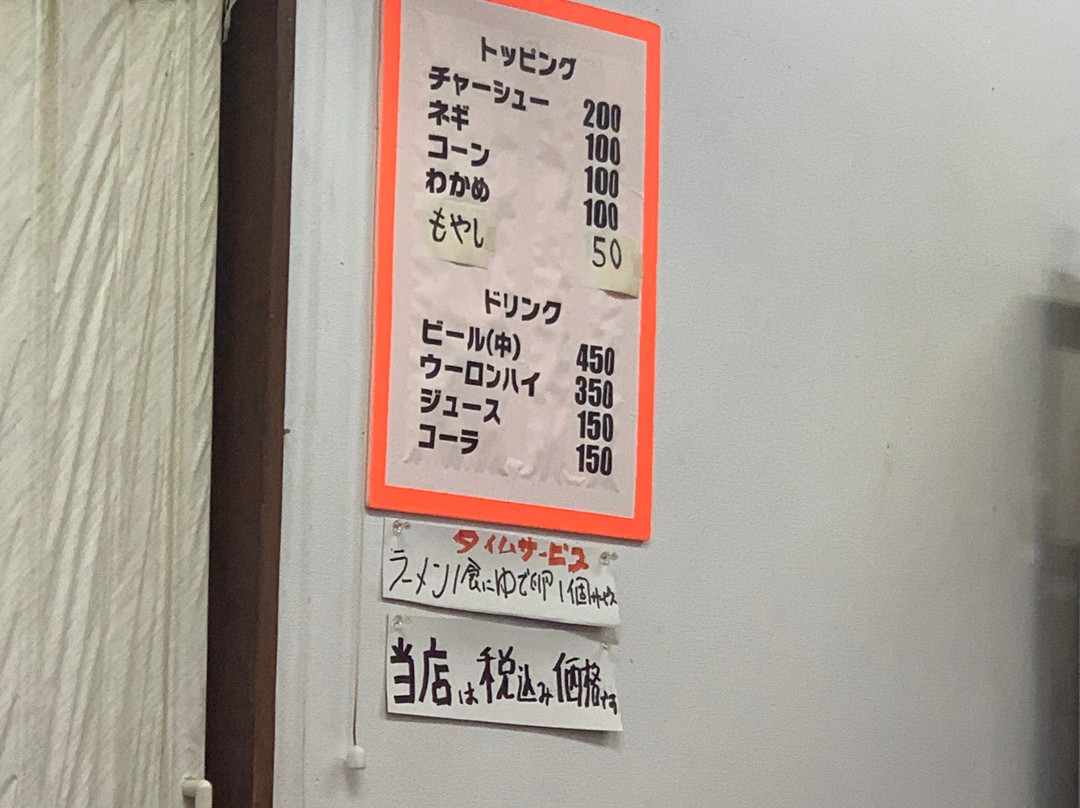 トッピング
チャーシュー 200
ネギ 100
コーン 100
わかめ 100
もやし 50
ドリンク
ビール(中) 450
ウーロンハイ 350
ジュース 150
コーラ 150
タイムサービス
ラーメン1食にゆで卵1個サービス
当店は税込み価格です